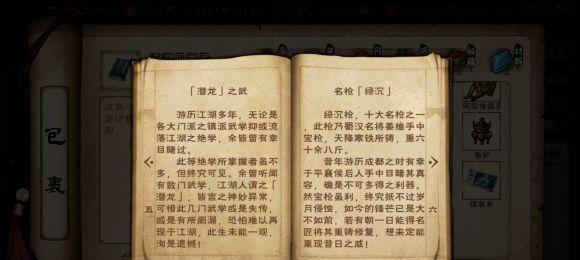 「潜龙」之武
游历江湖多年，无论是
各大门派之镇派武学抑或流
落江湖之绝学，余皆曾有幸
目睹过。
此等绝学所掌握者虽不
多，但终究可见。余曾听闻
有数门武学，江湖人谓之「
潜龙」，皆言之神妙异常，
可惜此几门武学或是失传，
或是有所阙漏，恐怕难以再
现于江湖，此生未能一观，
洵是遗憾！
五
名枪「绿沉」
绿沉枪，十大名枪之一
，此枪乃蜀汉名将姜维手中
宝枪，天降寒铁所铸，重六
十余八斤。
昔年游历成都之时有幸
于平襄侯后人手中目睹其真
容，确是不可多得之利器。
然宝枪虽利，终究抵不过岁
月侵蚀，如今的锋芒已是大
不如前，若有朝一日能得名
匠将其重铸修复，想来定能
重现昔日之威！
六
包裹
香炉